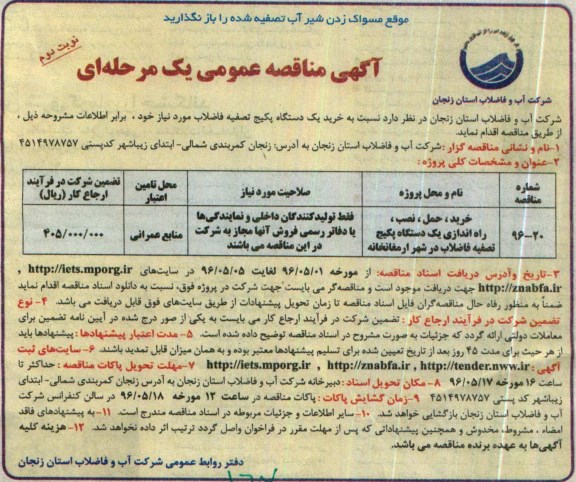 موقع مسواک زدن شیر آب تصفیه شده را باز نگذارید
نوبت دوم
آگهی مناقصه عمومی یک مرحله‌ای
شرکت آب و فاضلاب استان زنجان
شرکت آب و فاضلاب استان زنجان در نظر دارد نسبت به خرید یک دستگاه پکیج تصفیه فاضلاب مورد نیاز خود ، برابر اطلاعات مشروحه ذیل ،
از طریق مناقصه اقدام نماید.
۱-نام و نشانی مناقصه گزار : شرکت آب و فاضلاب استان زنجان به آدرس: زنجان کمربندی شمالی- ابتدای زیباشهر کدپستی ۴۵۱۴۹۷۸۷۵۷
۲-عنوان و مشخصات کلی پروژه :
شماره مناقصه
نام و محل پروژه
صلاحیت مورد نیاز
محل تامین اعتبار
تضمین شرکت در فرآیند ارجاع کار (ریال)
۹۶-۲۰
خرید ، حمل ، نصب ،
راه اندازی یک دستگاه پکیج
تصفیه فاضلاب در شهر ارمغانخانه
فقط تولیدکنندگان داخلی و نمایندگی‌ها
یا دفاتر رسمی فروش آنها مجاز به شرکت
در این مناقصه می باشند
منابع عمرانی
۴۰۵/۰۰۰/۰۰۰
۳-تاریخ وآدرس دریافت اسناد مناقصه: از مورخه ۹۶/۰۵/۰۱ لغایت ۹۶/۰۵/۰۵ در سایت‌های http://iets.mporg.ir ,
http://znabfa.ir جهت دریافت موجود است و مناقصه‌گر می بایست جهت شرکت در پروژه فوق، نسبت به دانلود اسناد مناقصه اقدام نماید
ضمناً به منظور رفاه حال مناقصه‌گران فایل اسناد مناقصه تا زمان تحویل پیشنهادات از طریق سایت‌های فوق قابل دریافت می باشد. ۴-نوع
تضمین شرکت در فرآیند ارجاع کار : تضمین شرکت در فرآیند ارجاع کار می بایست به یکی از صور درج شده در آیین نامه تضمین برای
معاملات دولتی ارائه گردد که جزئیات به صورت مشروح در اسناد مناقصه توضیح داده شده است. ۵-مدت اعتبار پیشنهادها : پیشنهادها باید
از هر حیث برای مدت ۴۵ روز بعد از تاریخ تعیین شده برای تسلیم پیشنهادها معتبر بوده و به همان میزان قابل تمدید باشند. ۶-سایت‌های ثبت
آگهی : http://iets.mporg.ir , http://znabfa.ir , http://tender.nww.ir ۷-مهلت تحویل پاکات مناقصه : حداکثر تا
ساعت ۱۶ مورخه ۹۶/۰۵/۱۷ ۸-مکان تحویل اسناد : دبیرخانه شرکت آب و فاضلاب استان زنجان به آدرس زنجان کمربندی شمالی- ابتدای
زیباشهر کد پستی ۴۵۱۴۹۷۸۷۵۷ ۹-زمان گشایش پاکات : پاکات مناقصه در ساعت ۱۲ مورخه ۹۶/۰۵/۱۸ در سالن کنفرانس شرکت
آب و فاضلاب استان زنجان بازگشایی خواهد شد. ۱۰-سایر اطلاعات و جزئیات مربوطه در اسناد مناقصه مندرج است. ۱۱-به پیشنهادهای فاقد
امضاء ، مشروط، مخدوش و همچنین پیشنهاداتی که پس از مهلت مقرر در فراخوان واصل گردد ترتیب اثر داده نخواهد شد. ۱۲-هزینه کلیه
آگهی‌ها به عهده برنده مناقصه می باشد.
دفتر روابط عمومی شرکت آب و فاضلاب استان زنجان